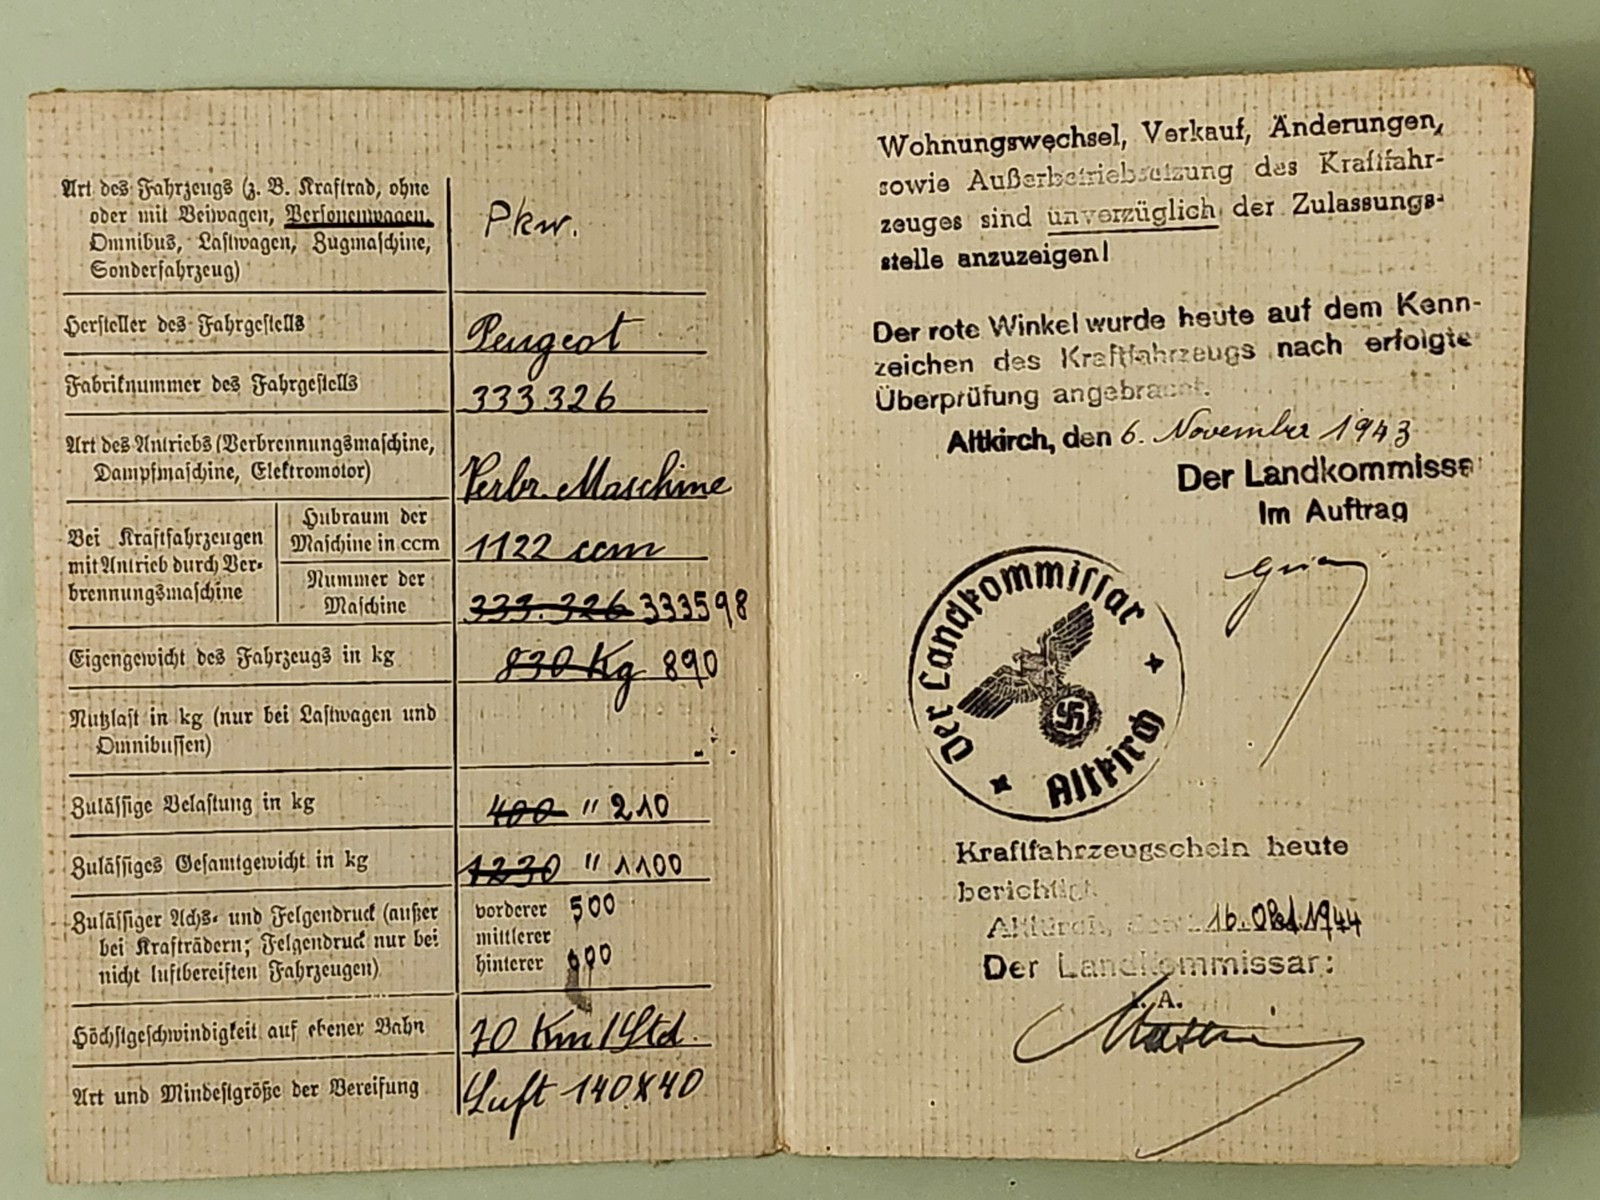 Art des Fahrzeugs (z. B. Kraftrad, ohne
oder mit Beiwagen, Personenwagen,
Omnibus, Lastwagen, Zugmaschine,
Sonderfahrzeug)
Pkw.
Hersteller des Fahrgestells
Peugeot
Fabriknummer des Fahrgestells
333326
Art des Antriebs (Verbrennungsmaschine,
Dampfmaschine, Elektromotor)
Verbr. Maschine
Bei Kraftfahrzeugen
mit Antrieb durch Ver-
brennungsmaschine
Hubraum der
Maschine in ccm
1122 ccm
Nummer der
Maschine
333.326 333598
Eigengewicht des Fahrzeugs in kg
830 Kg 890
Nutzlast in kg (nur bei Lastwagen und
Omnibussen)
Zulässige Belastung in kg
400 " 210
Zulässiges Gesamtgewicht in kg
1230 " 1100
Zulässiger Achs- und Felgendruck (außer
bei Krafträdern; Felgendruck nur bei
nicht luftbereiften Fahrzeugen)
vorderer 500
mittlerer
hinterer
Höchstgeschwindigkeit auf ebener Bahn
70 Km/Std.
Art und Mindestgröße der Bereifung
Luft 140x40
Wohnungswechsel, Verkauf, Änderungen,
sowie Außerbetriebsetzung des Kraftfahr-
zeuges sind unverzüglich der Zulassungs-
stelle anzuzeigen!
Der rote Winkel wurde heute auf dem Kenn-
zeichen des Kraftfahrzeugs nach erfolgte
Überprüfung angebracht.
Altkirch, den 6. November 1943
Der Landkommissa
Im Auftrag
Der Landkommissar
Altkirch
Kraftfahrzeugschein heute
berichtigt
Altkirch, den 16. Okt. 1944
Der Landkommissar:
I. A.